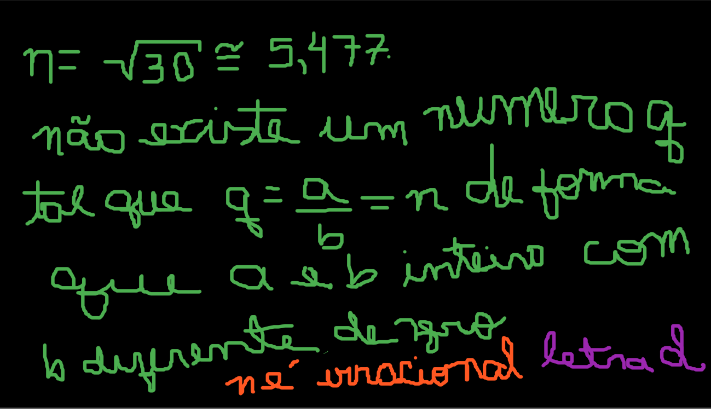 n = √30 ≅ 5,477.
não existe um numero q
tal que q = a/b = n de forma
que a e b inteiro com
b difrente de zero
n é irracional letra d